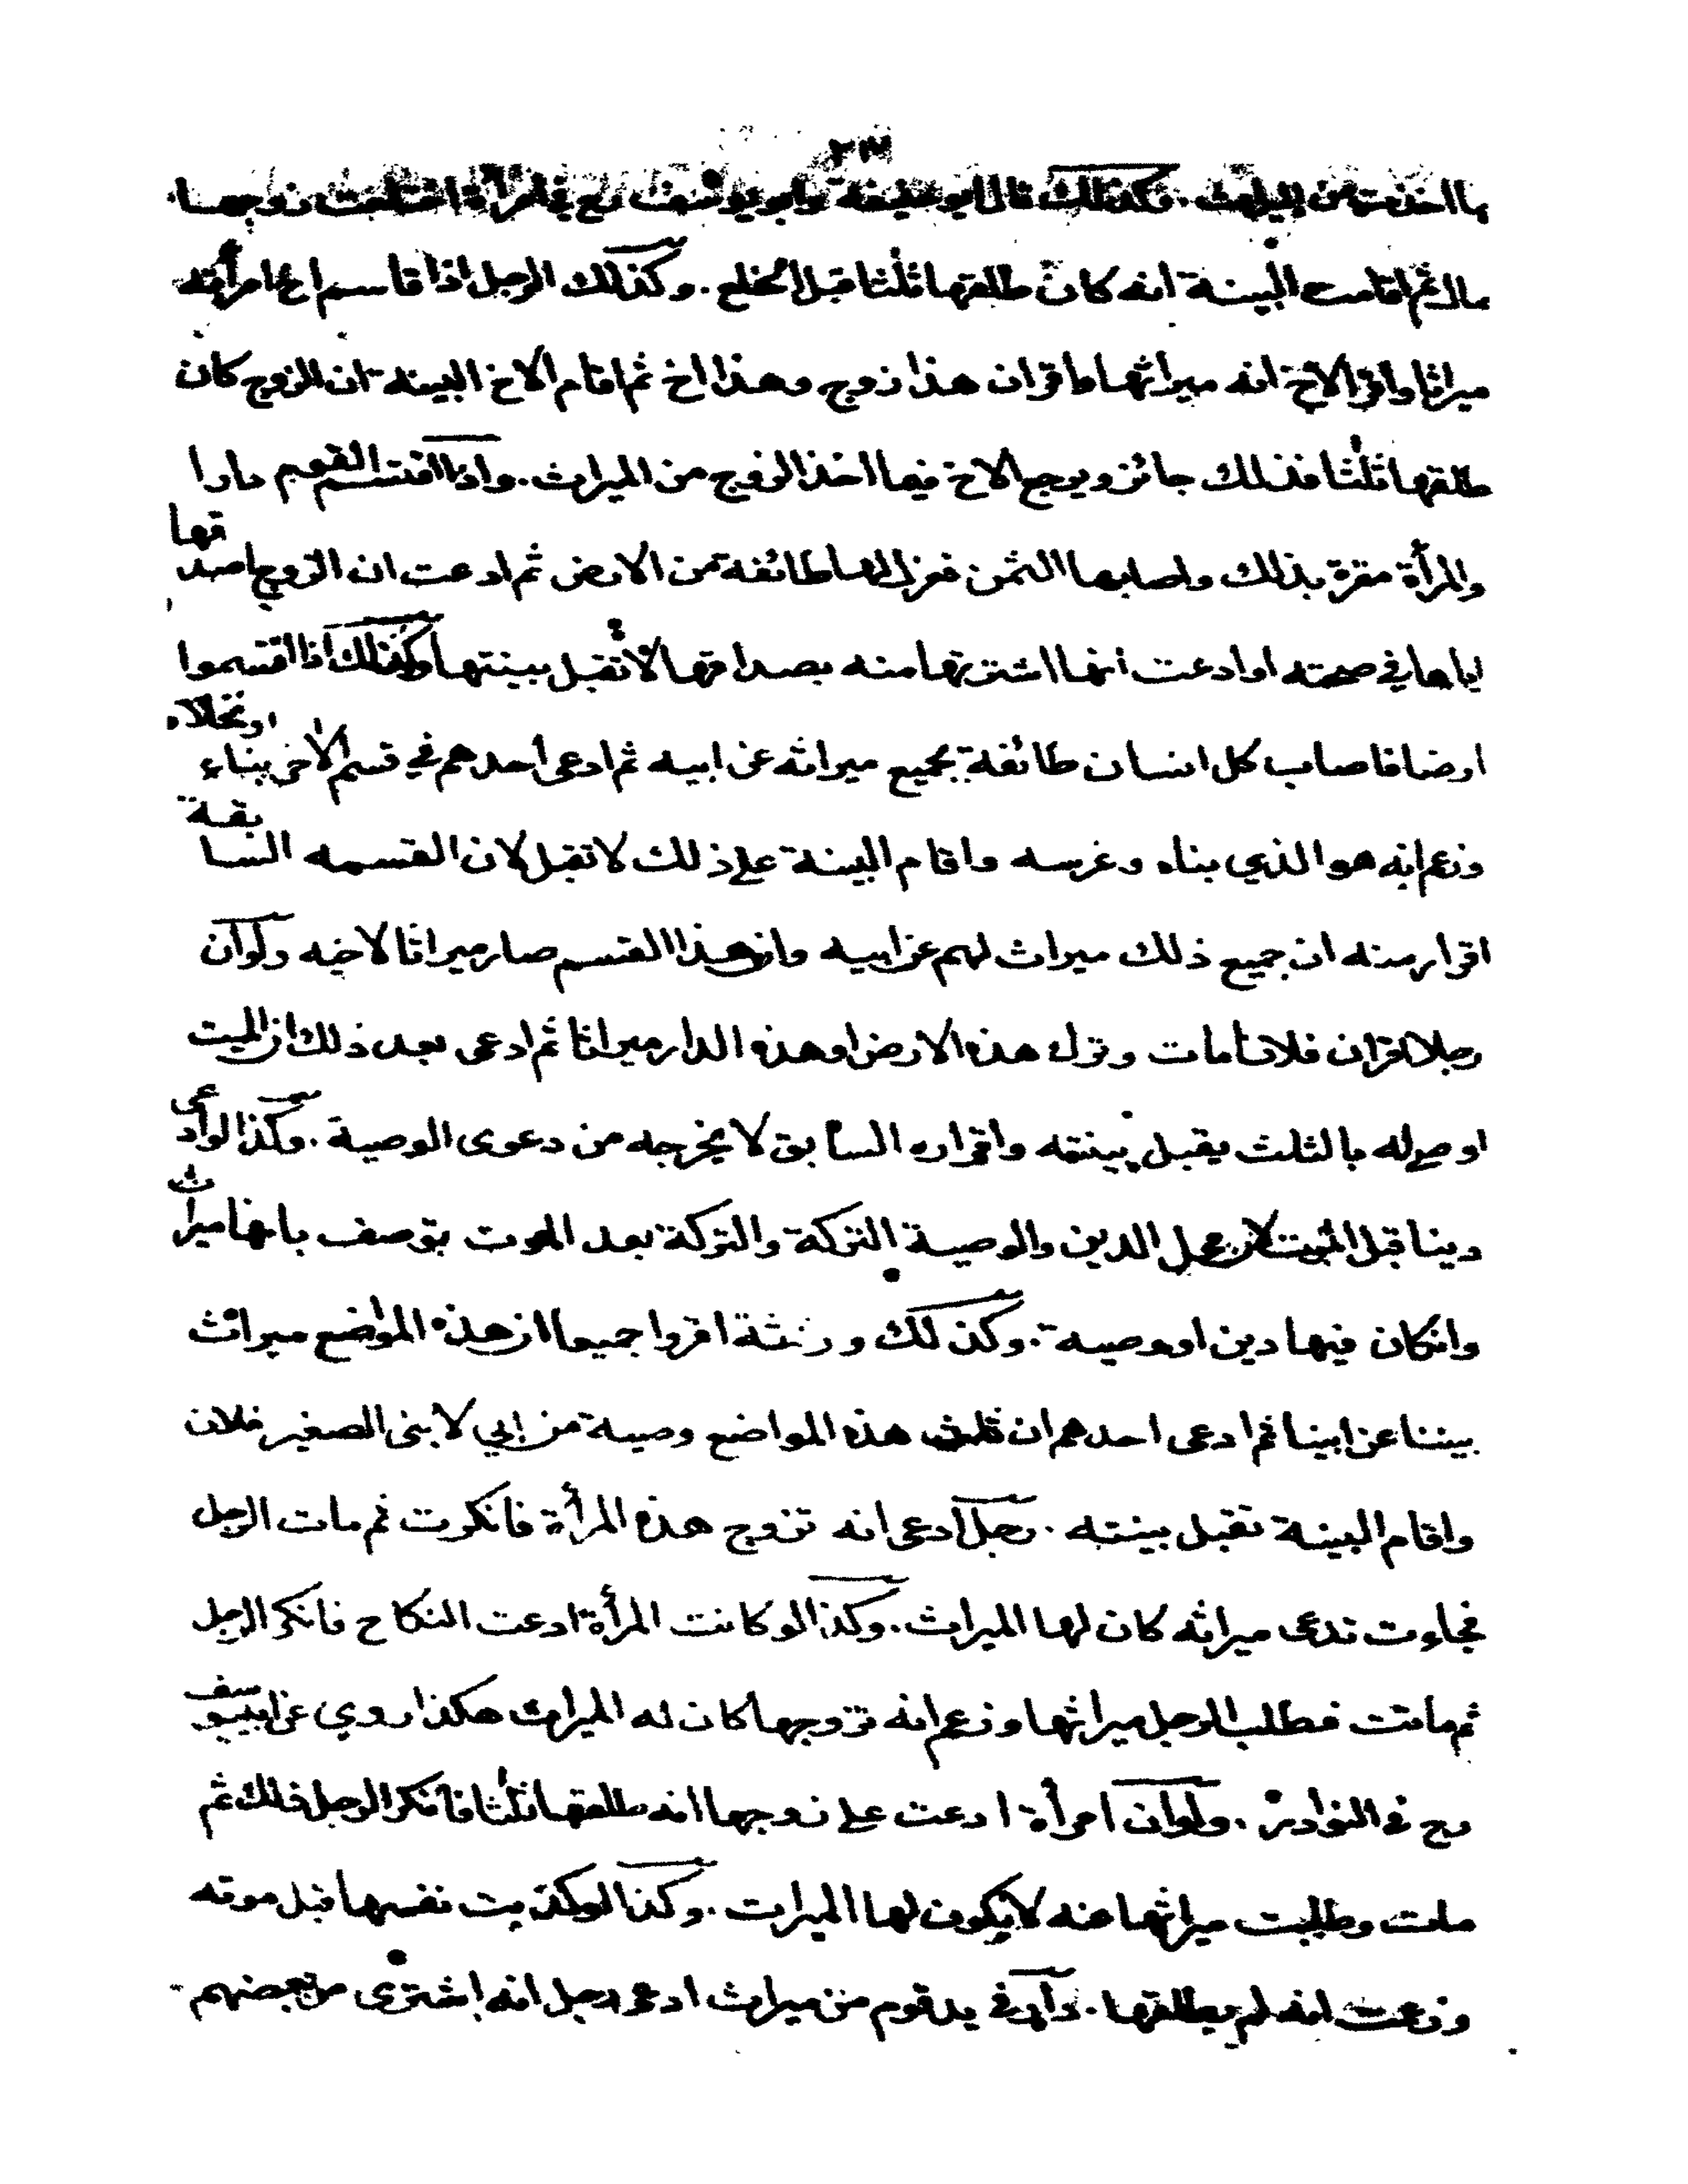 ٢٣
ما اخذت من الميراث. وكذلك قال ابو حنيفة وابو يوسف رح في امرأة اختلعت زوجها
مال ثم اقامت البينة انه كان طلقها ثلثا قبل الخلع. وكذلك الرجل اذا قاسم اخا امرأته
ميراثا واقر الاخ انه ميراثها واقر ان هذا زوج وهذا اخ ثم اقام الاخ البينة ان الزوج كان
طلقها ثلثا فذلك جائز ويرجع الاخ فيما اخذ الزوج من الميراث. واذا اقتسم القوم دارا
والمرأة مقرة بذلك واصابها الثمن فعزل لها طائفة من الارض ثم ادعت ان الزوج اصدقها
اياها في صحته او ادعت انها اشترتها منه بصداقها لا تقبل بينتها وكذلك اذا اقتسموا
ارضا فاصاب كل انسان طائفة بجميع ميراثه عن ابيه ثم ادعى احدهم في قسم الاخر بناء او نخلا
وزعم انه هو الذي بناه وغرسه واقام البينة على ذلك لا تقبل لان القسمه السابقة
اقرار منه ان جميع ذلك ميراث لهم عن ابيه وان هذا القسم صار ميراثا لاخيه ولو ان
رجلا اقر ان فلانا مات وترك هذه الارض او هذه الدار ميراثا ثم ادعى بعد ذلك ان الميت
اوصى له بالثلث يقبل بينته واقراره السابق لا يخرجه من دعوى الوصية. وكذا لو ادعى
دينا قبل الميت لان محل الدين والوصية التركة والتركة بعد الموت توصف بانها ميراث
وان كان فيها دين او وصية. وكذلك ورثة اقروا جميعا ان هذه المواضع ميراث
بيننا عن ابينا ثم ادعى احدهم ان ثلث هذه المواضع وصية من ابي لابني الصغير فلان
واقام البينة تقبل بينته. رجل ادعى انه تزوج هذه المرأة فانكرت ثم مات الرجل
فجاءت تدعى ميراثه كان لها الميراث. وكذا لو كانت المرأة ادعت النكاح فانكر الرجل
ثم ماتت فطلب الرجل ميراثها وزعم انه تزوجها كان له الميراث هكذا روي عن ابي يوسف
رح في النوادر. ولو ان امرأة ادعت على زوجها انه طلقها ثلثا فانكر الرجل ذلك ثم
مات وطلبت ميراثها منه لا يكون لها الميراث. وكذا لو كذبت نفسها قبل موته
وزعمت انه لم يطلقها. دار في يد قوم من ميراث ادعى رجل انه اشترى من بعضهم